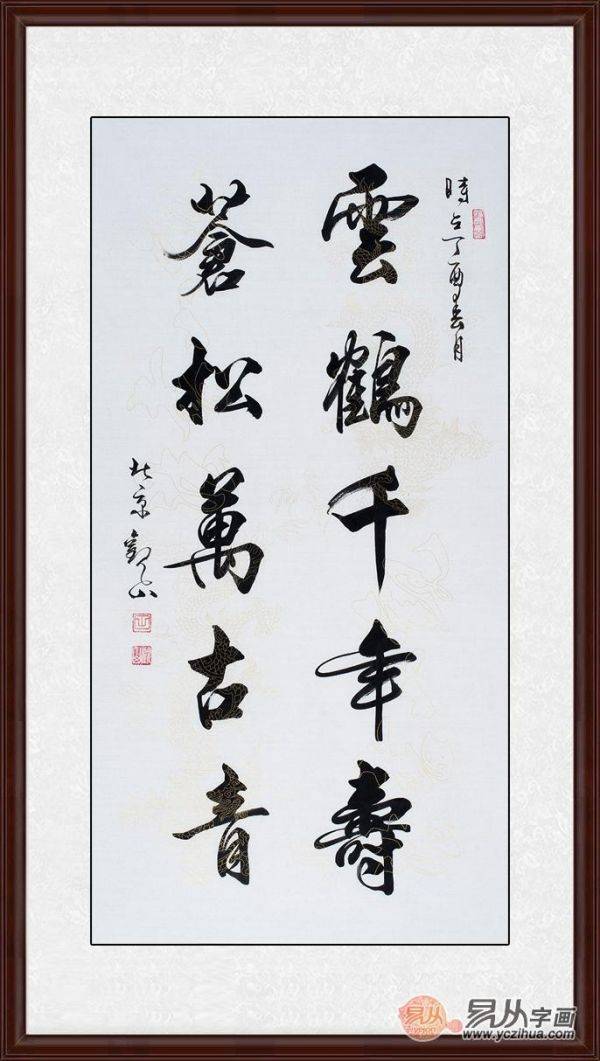 時占丁酉春月
雲鶴千年壽
蒼松萬古青
北京山
易从
易从字画
www.yczihua.com